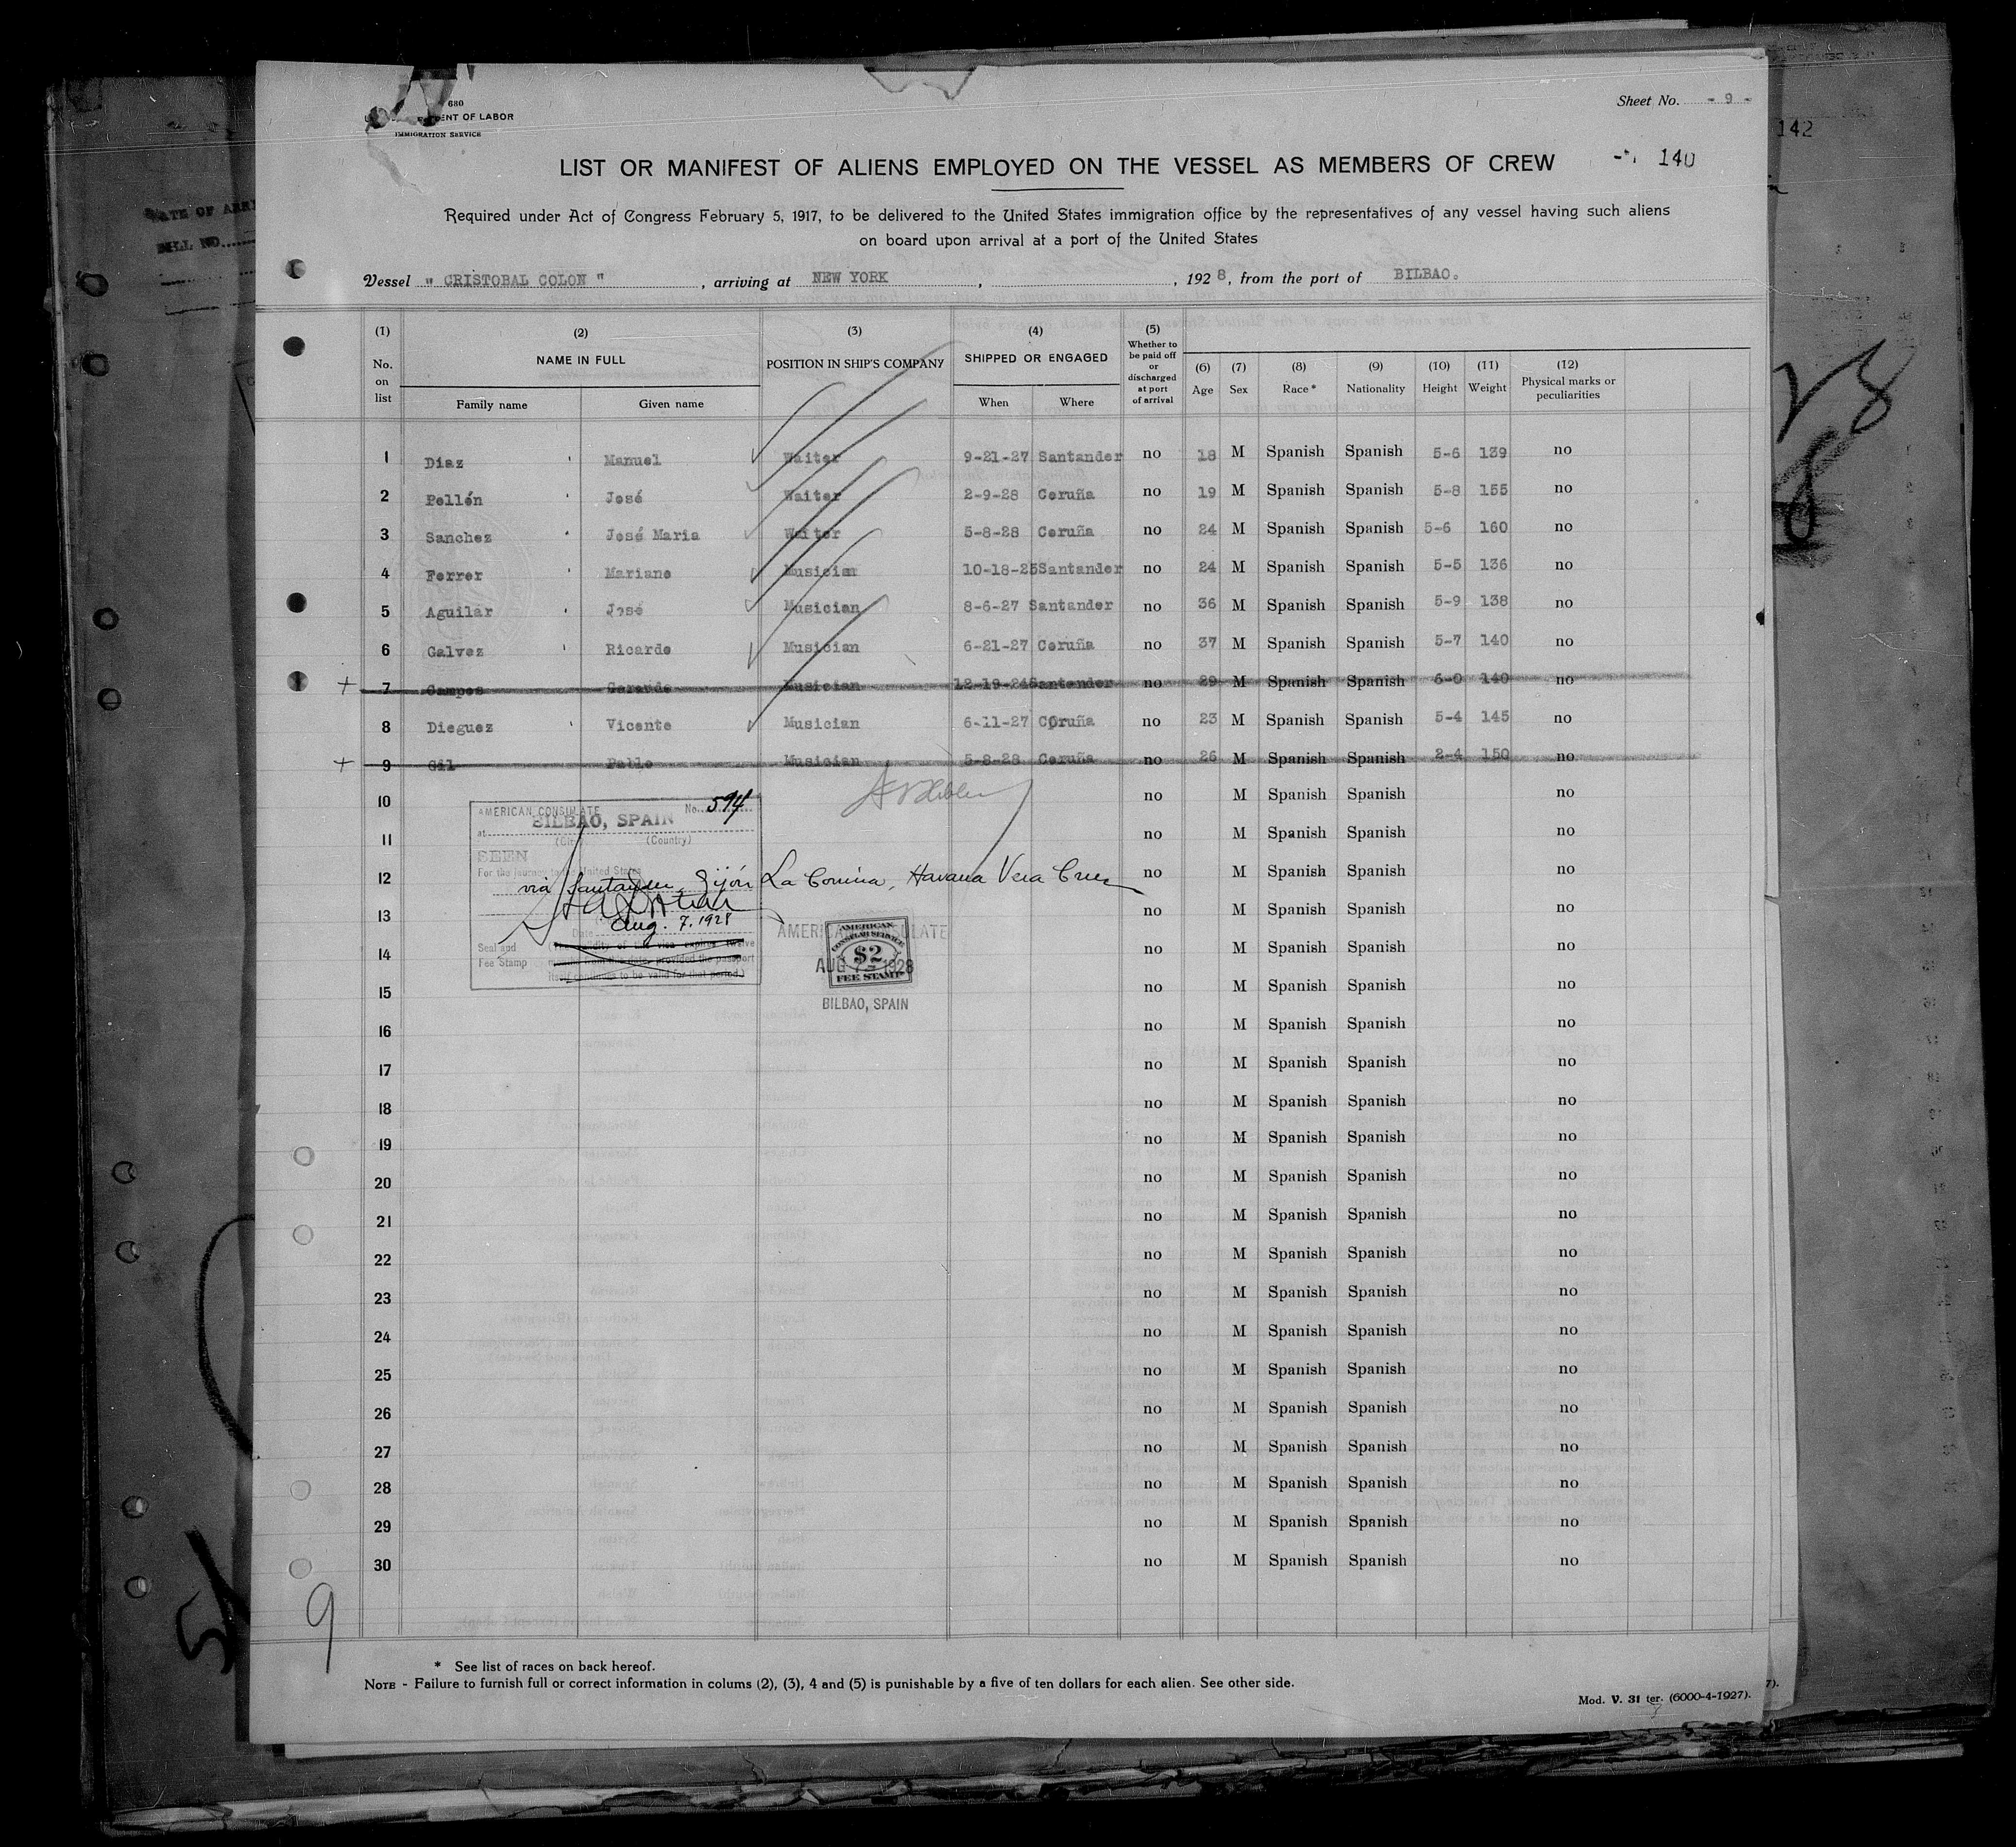 680
ENT OF LABOR
IMMIGRATION SERVICE
Sheet No. - 9 -
142
140
LIST OR MANIFEST OF ALIENS EMPLOYED ON THE VESSEL AS MEMBERS OF CREW
Required under Act of Congress February 5, 1917, to be delivered to the United States immigration office by the representatives of any vessel having such aliens
on board upon arrival at a port of the United States
Vessel " CRISTOBAL COLON " , arriving at NEW YORK , , 1928, from the port of BILBAO.
(1) No. on list (2) NAME IN FULL Family name Given name (3) POSITION IN SHIP'S COMPANY (4) SHIPPED OR ENGAGED When Where (5) Whether to be paid off or discharged at port of arrival (6) Age (7) Sex (8) Race* (9) Nationality (10) Height (11) Weight (12) Physical marks or peculiarities
1 Diaz Manuel Waiter 9-21-27 Santander no 18 M Spanish Spanish 5-6 139 no
2 Pellón José Waiter 2-9-28 Coruña no 19 M Spanish Spanish 5-8 155 no
3 Sanchez José Maria Waiter 5-8-28 Coruña no 24 M Spanish Spanish 5-6 160 no
4 Ferrer Mariano Musician 10-18-25 Santander no 24 M Spanish Spanish 5-5 136 no
5 Aguilar José Musician 8-6-27 Santander no 36 M Spanish Spanish 5-9 138 no
6 Galvez Ricardo Musician 6-21-27 Coruña no 37 M Spanish Spanish 5-7 140 no
7 Campos Musician 12-19-24 Santander no 29 M Spanish Spanish 6-0 140 no
8 Dieguez Vicente Musician 6-11-27 Coruña no 23 M Spanish Spanish 5-4 145 no
9 Gil Pablo Musician 5-8-28 Coruña no 26 M Spanish Spanish 2-4 150 no
10 no M Spanish Spanish no
11 no M Spanish Spanish no
12 no M Spanish Spanish no
13 no M Spanish Spanish no
14 no M Spanish Spanish no
15 no M Spanish Spanish no
16 no M Spanish Spanish no
17 no M Spanish Spanish no
18 no M Spanish Spanish no
19 no M Spanish Spanish no
20 no M Spanish Spanish no
21 no M Spanish Spanish no
22 no M Spanish Spanish no
23 no M Spanish Spanish no
24 no M Spanish Spanish no
25 no M Spanish Spanish no
26 no M Spanish Spanish no
27 no M Spanish Spanish no
28 no M Spanish Spanish no
29 no M Spanish Spanish no
30 no M Spanish Spanish no
AMERICAN CONSULATE No. 594
at BILBAO, SPAIN
(City) (Country)
SEEN
For the journey to the United States
via Santander, Gijón La Coruna, Havana Vera Cruz
Date Aug. 7, 1928
Seal and Fee Stamp
(The validity of this visa expires twelve
months from this date, provided the passport
itself continues to be valid for that period.)
AMERICAN CONSULATE
AMERICAN CONSULAR SERVICE
$2
FEE STAMP
AUG 7 - 1928
BILBAO, SPAIN
9
* See list of races on back hereof.
NOTE - Failure to furnish full or correct information in colums (2), (3), 4 and (5) is punishable by a five of ten dollars for each alien. See other side.
Mod. V. 31 ter. (6000-4-1927).